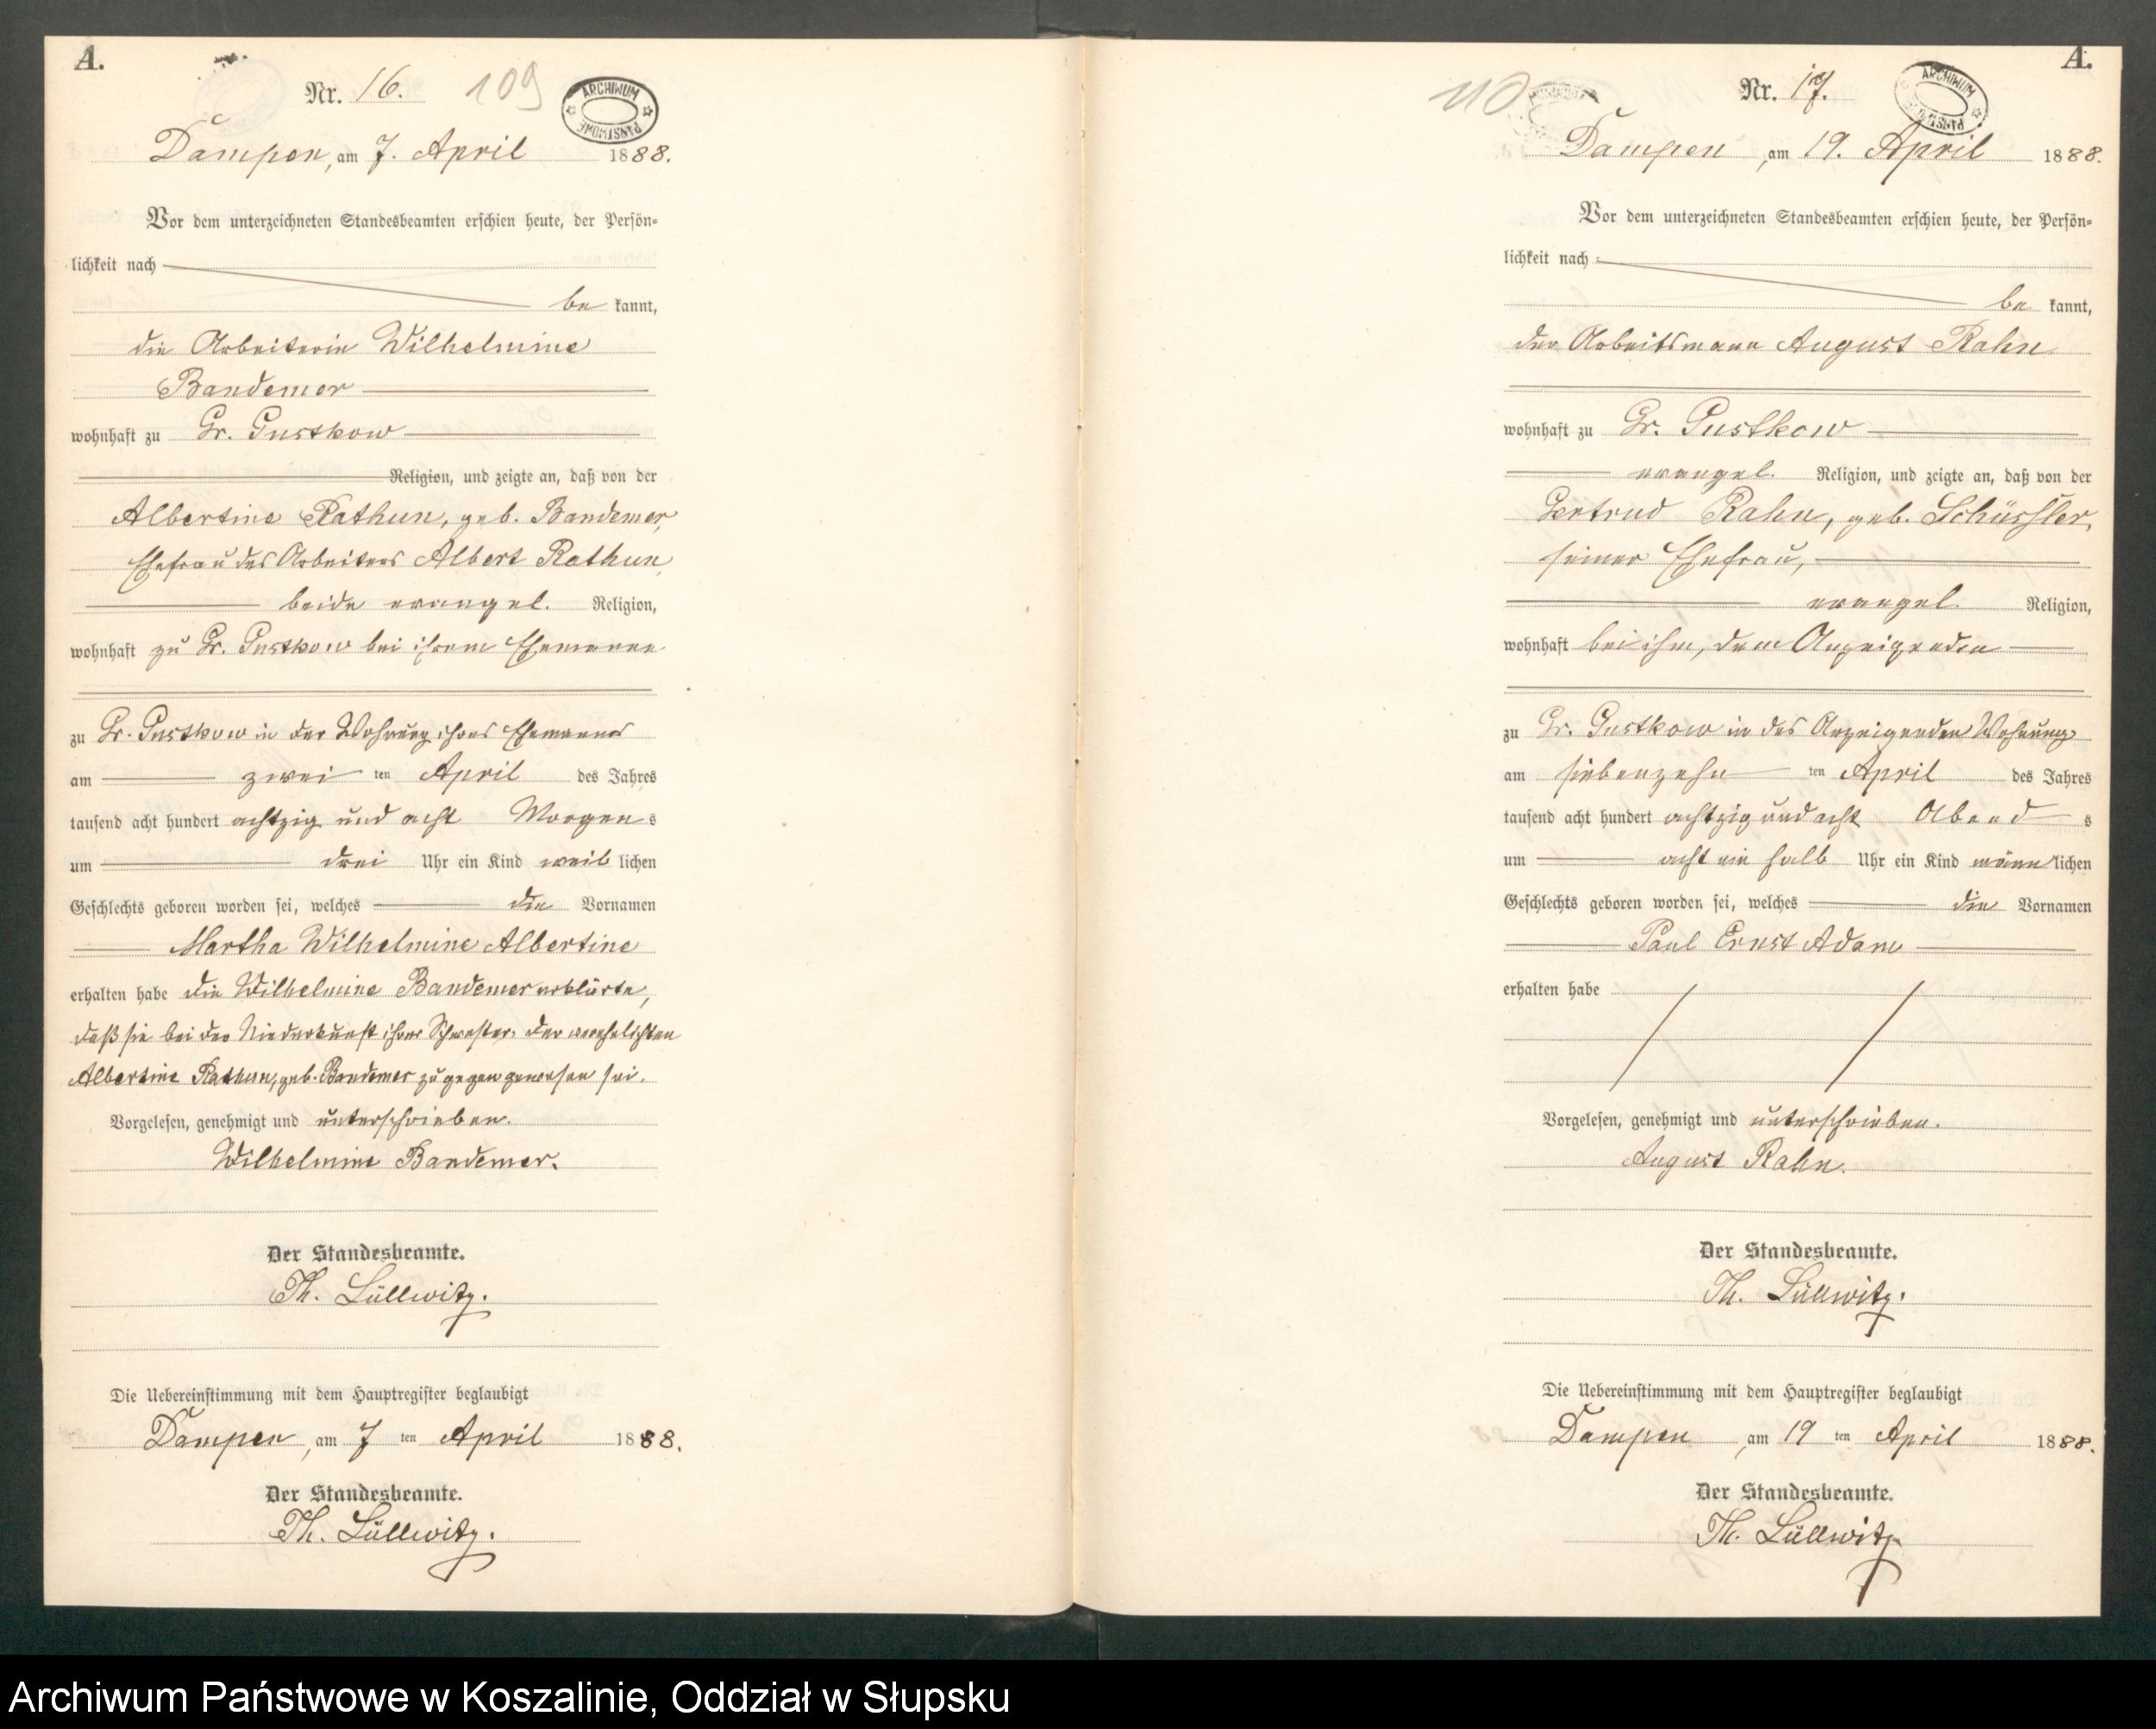 A.
Nr. 16.
109
ARCHIWUM PAŃSTWOWE
Dampen, am 7. April 1888.
Vor dem unterzeichneten Standesbeamten erschien heute, der Persön-
lichkeit nach
be kannt,
die Arbeiterin Wilhelmine
Bandemer
wohnhaft zu Gr. Gustkow
Religion, und zeigte an, daß von der
Albertine Rathun, geb. Bandemer,
Ehefrau des Arbeiters Albert Rathun,
beide evangel. Religion,
wohnhaft zu Gr. Gustkow bei ihrem Ehemanne
zu Gr. Gustkow in der Wohnung ihres Ehemannes
am zwei ten April des Jahres
tausend acht hundert achtzig und acht Morgen s
um drei Uhr ein Kind weib lichen
Geschlechts geboren worden sei, welches die Vornamen
Martha Wilhelmine Albertine
erhalten habe die Wilhelmine Bandemer erklärte,
daß sie bei der Niederkunft ihrer Schwester, der verehelichten
Albertine Rathun, geb. Bandemer zugegen gewesen sei.
Vorgelesen, genehmigt und unterschrieben.
Wilhelmine Bandemer.
Der Standesbeamte.
Th. Lüllwitz.
Die Uebereinstimmung mit dem Hauptregister beglaubigt
Dampen, am 7 ten April 1888.
Der Standesbeamte.
Th. Lüllwitz.
A.
110
Nr. 17.
ARCHIWUM PAŃSTWOWE
Dampen, am 19. April 1888.
Vor dem unterzeichneten Standesbeamten erschien heute, der Persön-
lichkeit nach
be kannt,
der Arbeitsmann August Rahn
wohnhaft zu Gr. Gustkow
evangel. Religion, und zeigte an, daß von der
Gertrud Rahn, geb. Schüssler,
seiner Ehefrau,
evangel. Religion,
wohnhaft bei ihm, dem Anzeigenden
zu Gr. Gustkow in des Anzeigenden Wohnung
am siebenzehn ten April des Jahres
tausend acht hundert achtzig und acht Abend s
um acht ein halb Uhr ein Kind männ lichen
Geschlechts geboren worden sei, welches die Vornamen
Paul Ernst Adam
erhalten habe
Vorgelesen, genehmigt und unterschrieben.
August Rahn.
Der Standesbeamte.
Th. Lüllwitz.
Die Uebereinstimmung mit dem Hauptregister beglaubigt
Dampen, am 19 ten April 1888.
Der Standesbeamte.
Th. Lüllwitz.
Archiwum Państwowe w Koszalinie, Oddział w Słupsku